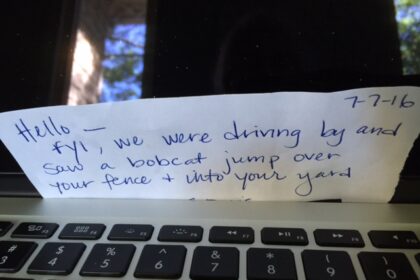 7-7-16
Hello —
FYI, we were driving by and
saw a bobcat jump over
your fence + into your yard
80 F3 F4 F5 F6 F7 F8 F9 F10
# 3 $ 4 % 5 ^ 6 & 7 * 8 ( 9 ) 0